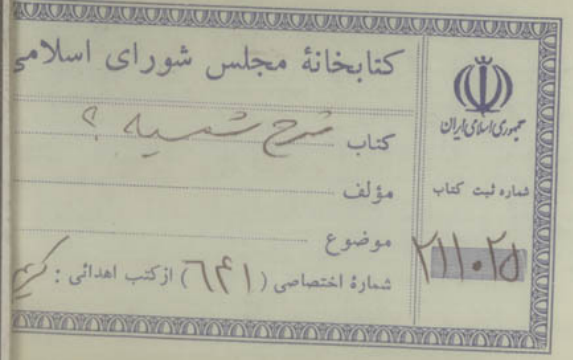 کتابخانهٔ مجلس شورای اسلامی
کتاب شرح شمسیه ؟
مؤلف
موضوع
شمارهٔ اختصاصی ( ۶۴۱ ) از کتب اهدائی :
جمهوری اسلامی ایران
شماره ثبت کتاب
۲۱۱۰۲۵